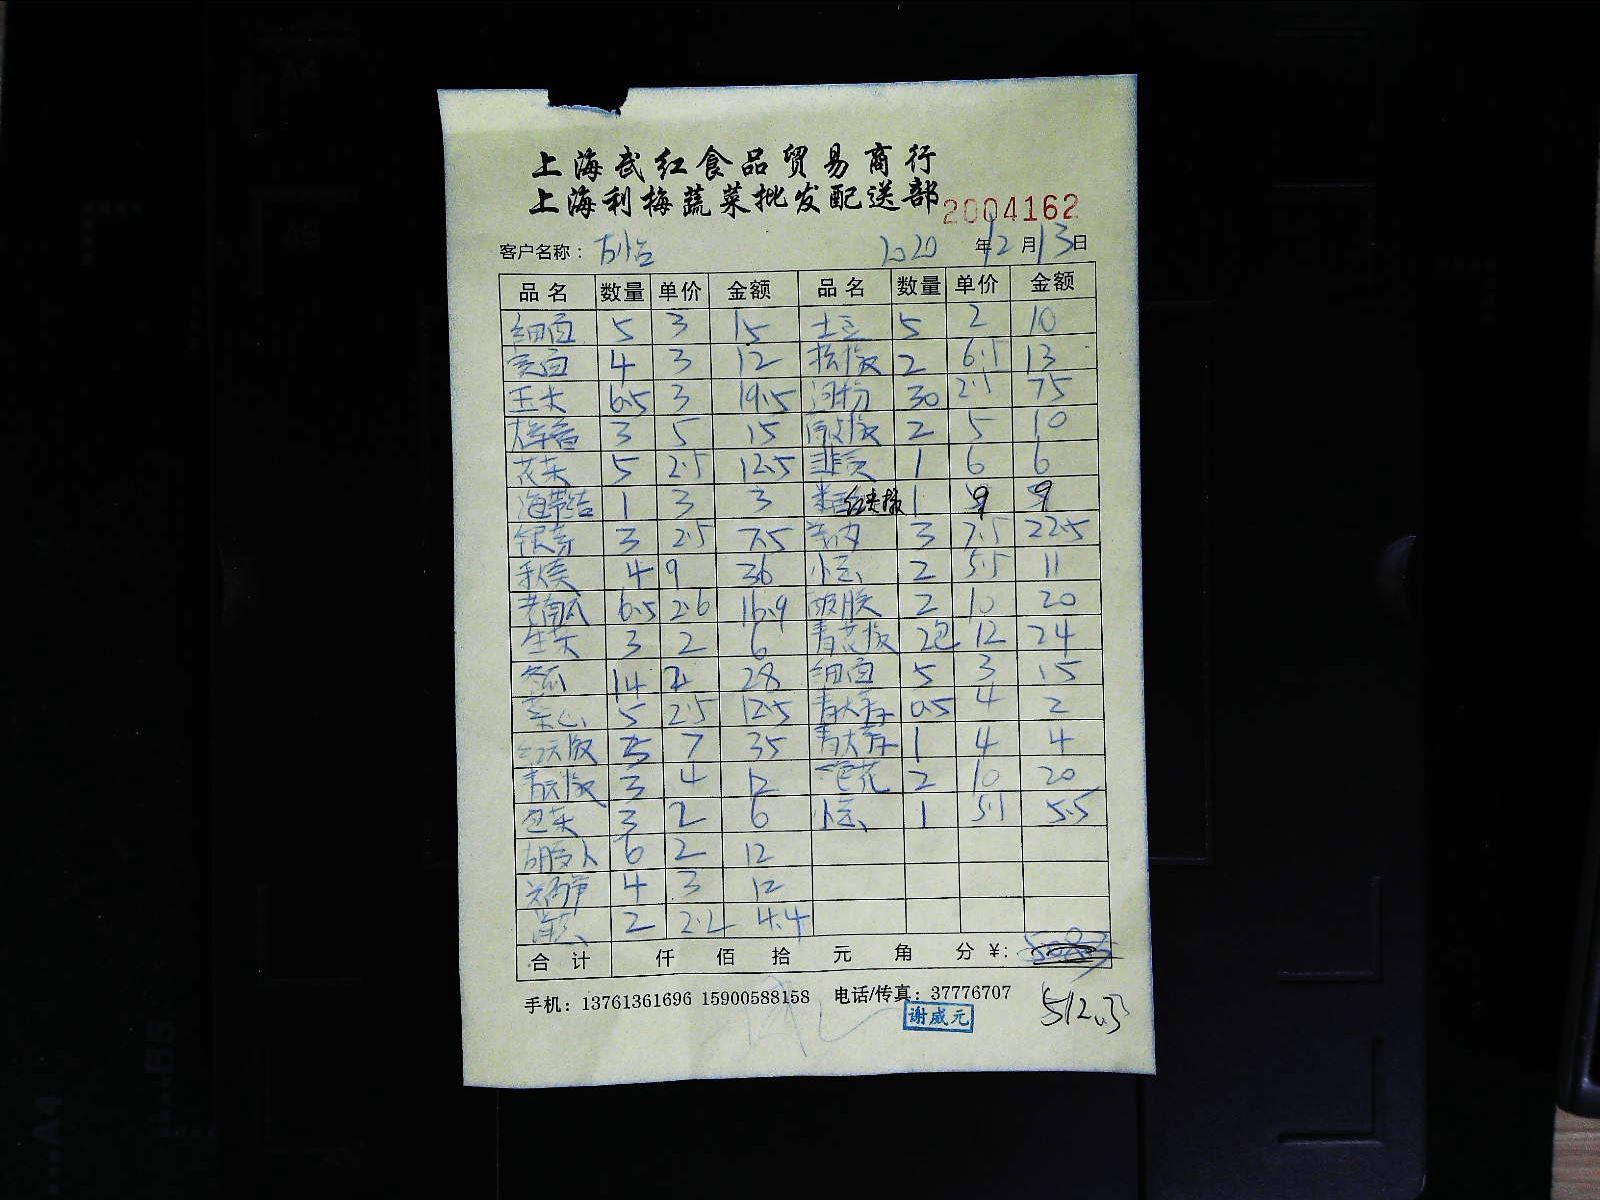 上海武红食品贸易商行
上海利梅蔬菜批发配送部 2004162
客户名称： 2020 年 12 月 13 日
品名 数量 单价 金额 品名 数量 单价 金额
细面 5 3 15 土豆 5 2 10
4 3 12 2 6.5 13
玉米 6.5 3 19.5 河粉 30 2.5 75
3 5 15 2 5 10
花菜 5 2.5 12.5 韭黄 1 6 6
海带结 1 3 3 红尖椒 1 9 9
银芽 3 2.5 7.5 3 7.5 22.5
4 9 36 小葱 2 5.5 11
老南瓜 6.5 2.6 16.9 2 10 20
生菜 3 2 6 2包 12 24
冬瓜 14 2 28 细面 5 3 15
菜心 5 2.5 12.5 0.5 4 2
5 7 35 1 4 4
3 4 12 2 10 20
包菜 3 2 6 小葱 1 5.5 5.5
胡萝卜 6 2 12
4 3 12
2 2.2 4.4
合计 仟 佰 拾 元 角 分 ¥:
手机：13761361696 15900588158 电话/传真：37776707
谢威元
512.3